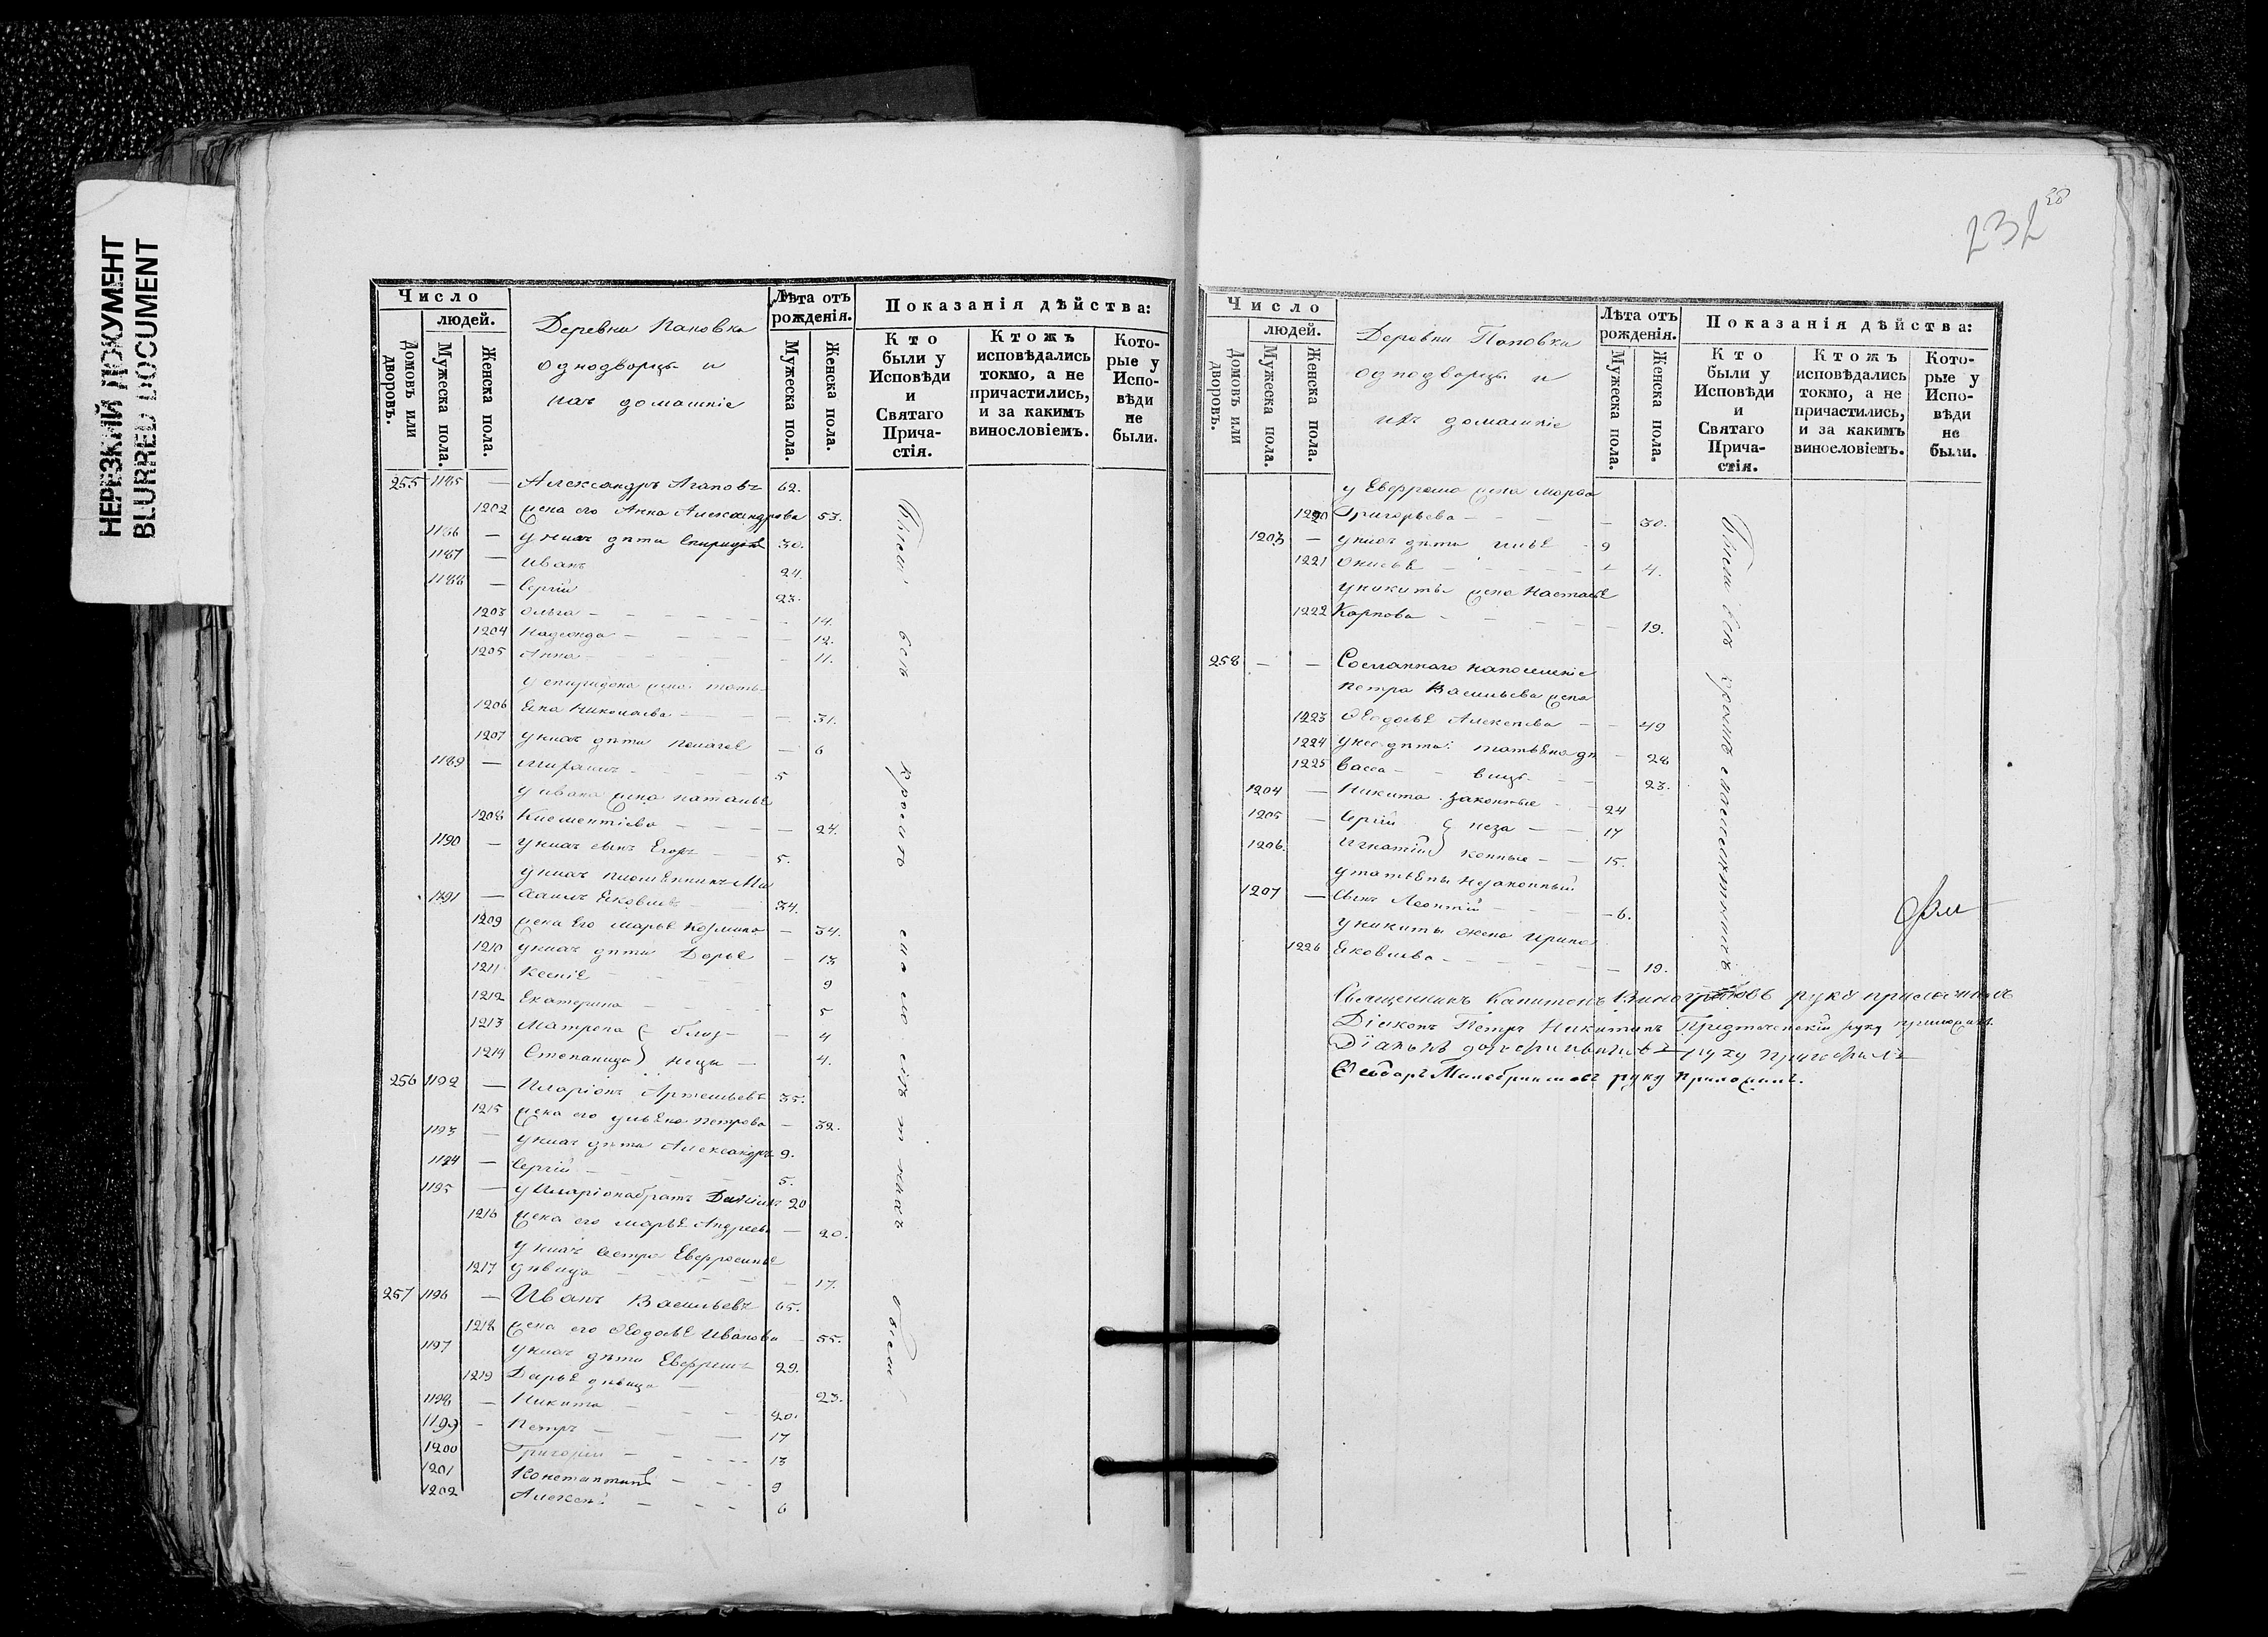 НЕРЕЗКИЙ ДОКУМЕНТ
BLURRED DOCUMENT
Число
людей.
Домовъ или дворовъ.
Мужеска пола.
Женска пола.
Деревни Поповки
однодворцы и
ихъ домашніе
Лѣта отъ рожденія.
Мужеска пола.
Женска пола.
Показанія дѣйства:
Кто были у Исповѣди и Святаго Причастія.
Ктожъ исповѣдались токмо, а не причастились, и за какимъ винословіемъ.
Которые у Исповѣди не были.
255 1185 — Александръ Агаповъ 62.
1202 жена его Анна Александрова 53.
1186 — у нихъ дѣти Спиридонъ 30.
1187 — Иванъ 24.
1188 — Сергій 23.
1203 Ольга — 14.
1204 Надежда — 12.
1205 Анна — 11.
у Спиридона жена Тать-
1206 яна Николаева — 31.
1207 у нихъ дѣти Пелагея — 6
1189 — 5
у Ивана жена Наталья
1208 Климентіева — 24.
1190 — у нихъ сынъ Егоръ 5.
у нихъ племянникъ Ми
1191 — хаилъ Яковлевъ 34.
1209 жена его Марья Козмина — 34.
1210 у нихъ дѣти Дарья — 13
1211 Ксенія 9
1212 Екатерина 5
1213 Матрена близ- — 4
1214 Степанида нецы — 4.
256 1192 — Иларіонъ Артемьевъ 35.
1215 жена его Ульяна Петрова — 32.
1193 — у нихъ дѣти Александръ 9.
1194 — Сергій — 5.
1195 — у Иларіона братъ 20
1216 жена его Марья Андреева — 20.
у нихъ сестра Евфросинья
1217 дѣвица — 17.
257 1196 — Иванъ Васильевъ 65.
1218 жена его Ѳеодосья Иванова 55.
1197 у нихъ дѣти Евфремъ 29.
1219 Дарья дѣвица — 23.
1198 — Никита — 20.
1199 — Петръ — 17
1200 Григорій — 13
1201 Константинъ — 9
1202 Алексѣй — 6
232
Число
людей.
Домовъ или дворовъ.
Мужеска пола.
Женска пола.
Деревни Поповки
однодворцы и
ихъ домашніе
Лѣта отъ рожденія.
Мужеска пола.
Женска пола.
Показанія дѣйства:
Кто были у Исповѣди и Святаго Причастія.
Ктожъ исповѣдались токмо, а не причастились, и за какимъ винословіемъ.
Которые у Исповѣди не были.
у Евфрема жена Марѳа
1220 Григорьева — 30.
1203 — у нихъ дѣти Илья 9
1221 Анисья — 4.
у Никиты жена Настасья
1222 Карпова — 19.
258 — — Сосланнаго на поселеніе
Петра Васильева жена
1223 Ѳеодосья Алексѣева — 49
1224 у нее дѣти: Татьяна дѣ — 28
1225 Васса — вицы — 23.
1204 — Никита законные — 24
1205 — Сергій неза — 17
1206. Игнатій конные — 15.
у Татьяны незаконный
1207 — сынъ Леонтій — 6.
у Никиты жена Ирина
1226 Яковлева — 19.
Священникъ Капитонъ Виноградовъ руку приложилъ
Діаконъ Петръ Никитинъ Предтеченскій руку приложилъ.
руку приложилъ
Ѳеодоръ руку приложилъ.